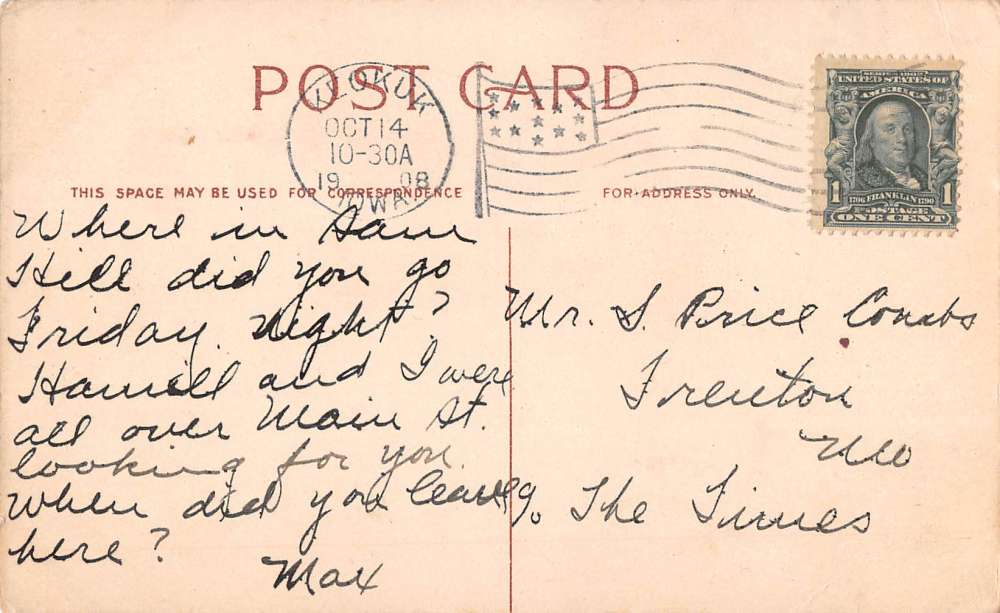 POST CARD
KEOKUK
OCT 14
10-30A
19 08
IOWA
SERIES 1902
UNITED STATES OF
AMERICA
1 1
1706 FRANKLIN 1790
POSTAGE
ONE CENT
THIS SPACE MAY BE USED FOR CORRESPONDENCE
FOR ADDRESS ONLY.
Where in Sam
Hill did you go
Friday night?
Hamill and I were
all over Main St.
looking for you.
When did you leave
here?
Max
Mr. S. Price Combs
Trenton
Mo
The Times